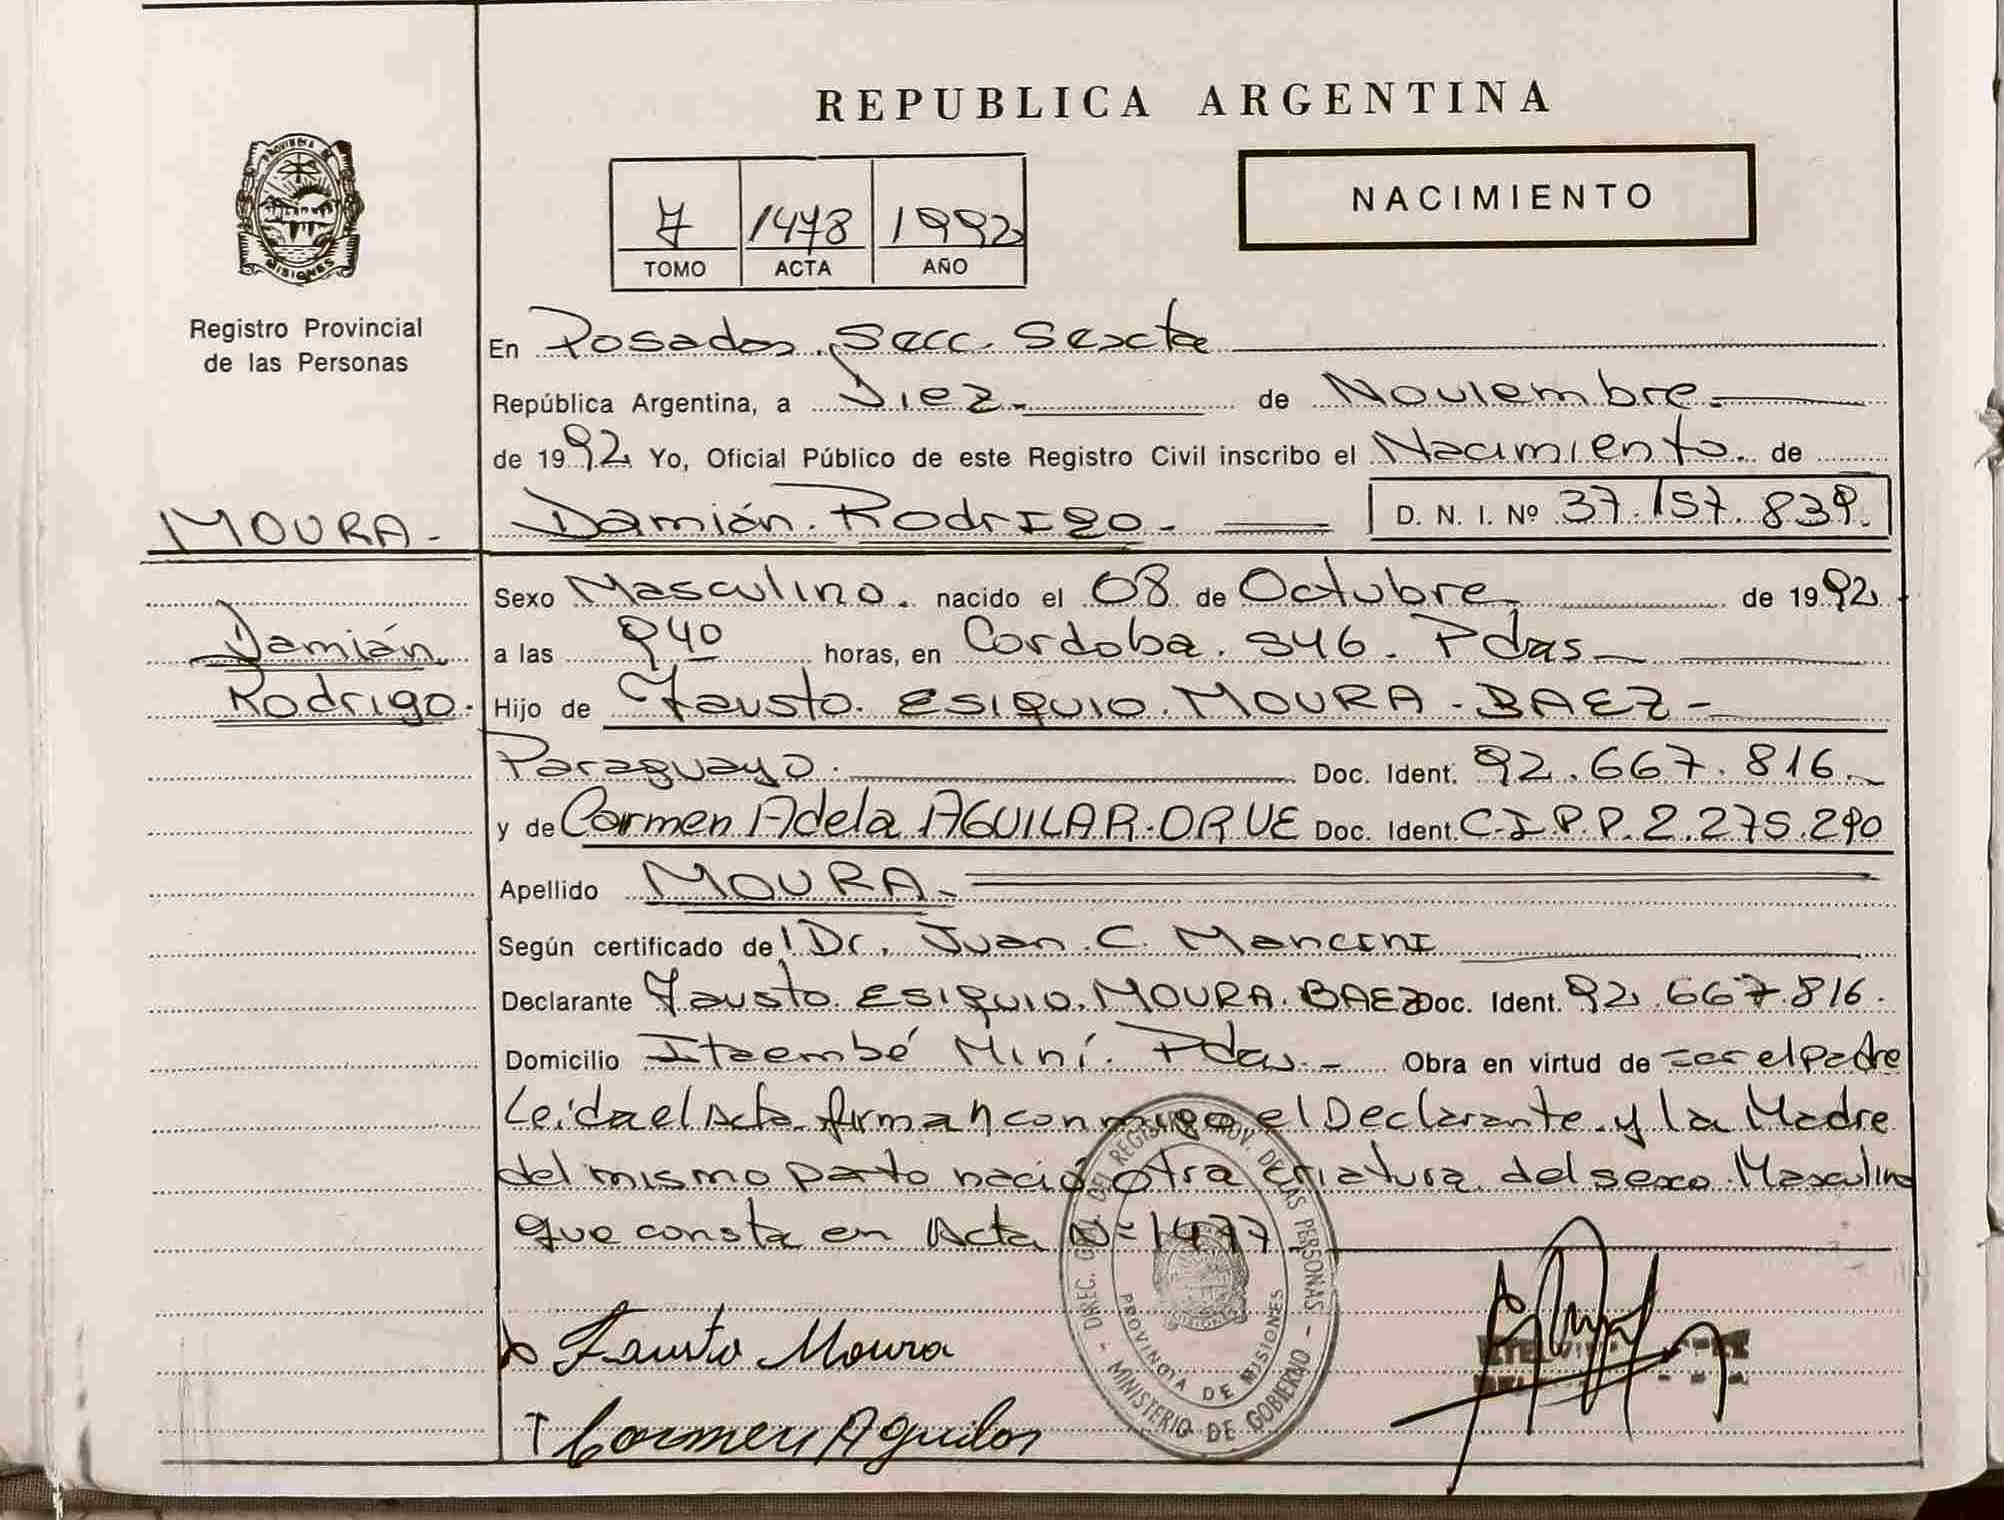 REPUBLICA ARGENTINA
PROVINCIA DE MISIONES
Registro Provincial
de las Personas
7 1478 1992
TOMO ACTA AÑO
NACIMIENTO
En Posadas, Secc. Sexta
República Argentina, a Diez de Noviembre
de 1992 Yo, Oficial Público de este Registro Civil inscribo el Nacimiento de
MOURA Damián Rodrigo D. N. I. Nº 37.157.839
Sexo Masculino nacido el 08 de Octubre de 1992
Damián a las 940 horas, en Cordoba 346 Pdas
Rodrigo Hijo de Fausto ESIQUIO MOURA - BAEZ -
Paraguayo Doc. Ident. 92.667.816
y de Carmen Adela AGUILAR ORUE Doc. Ident. C.I.P.P. 2.275.290
Apellido MOURA
Según certificado del Dr. Juan C. Mancini
Declarante Fausto ESIQUIO MOURA BAEZ Doc. Ident. 92.667.816
Domicilio Itaembé Miní Pdas Obra en virtud de ser el Padre
Leida el Acta firman conmigo el Declarante y la Madre
del mismo parto nació otra criatura del sexo Masculino
que consta en Acta Nº 1477
DIREC. GRAL. DEL REGISTRO PROV. DE LAS PERSONAS - MINISTERIO DE GOBIERNO -
PROVINCIA DE MISIONES
Fausto Moura
Carmen Aguilar